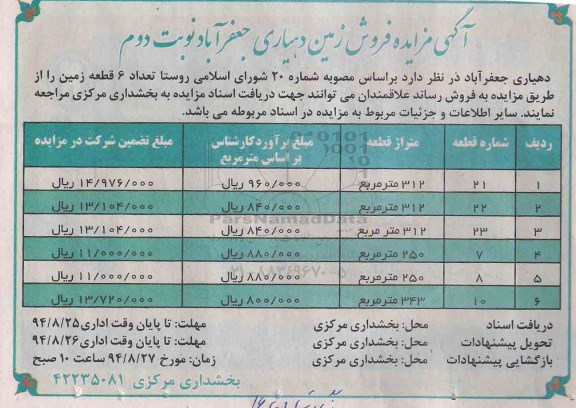 آگهی مزایده فروش زمین دهیاری جعفرآباد نوبت دوم
دهیاری جعفرآباد در نظر دارد براساس مصوبه شماره ۲۰ شورای اسلامی روستا تعداد ۶ قطعه زمین را از
طریق مزایده به فروش رساند علاقمندان می توانند جهت دریافت اسناد مزایده به بخشداری مرکزی مراجعه
نمایند. سایر اطلاعات و جزئیات مربوط به مزایده در اسناد مربوطه می باشد.
ردیف شماره قطعه متراژ قطعه مبلغ برآورد کارشناس بر اساس مترمربع مبلغ تضمین شرکت در مزایده
۱ ۲۱ ۳۱۲ مترمربع ۹۶۰/۰۰۰ ریال ۱۴/۹۷۶/۰۰۰ ریال
۲ ۲۲ ۳۱۲ مترمربع ۸۴۰/۰۰۰ ریال ۱۳/۱۰۴/۰۰۰ ریال
۳ ۲۳ ۳۱۲ متر مربع ۸۴۰/۰۰۰ ریال ۱۳/۱۰۴/۰۰۰ ریال
۴ ۷ ۲۵۰ مترمربع ۸۸۰/۰۰۰ ریال ۱۱/۰۰۰/۰۰۰ ریال
۵ ۸ ۲۵۰ مترمربع ۸۸۰/۰۰۰ ریال ۱۱/۰۰۰/۰۰۰ ریال
۶ ۱۰ ۳۴۳ مترمربع ۸۰۰/۰۰۰ ریال ۱۳/۷۲۰/۰۰۰ ریال
ParsNamadData
دریافت اسناد محل: بخشداری مرکزی مهلت: تا پایان وقت اداری ۹۴/۸/۲۵
تحویل پیشنهادات محل: بخشداری مرکزی مهلت: تا پایان وقت اداری ۹۴/۸/۲۶
بازگشایی پیشنهادات محل: بخشداری مرکزی زمان: مورخ ۹۴/۸/۲۷ ساعت ۱۰ صبح
بخشداری مرکزی ۴۲۲۳۵۰۸۱